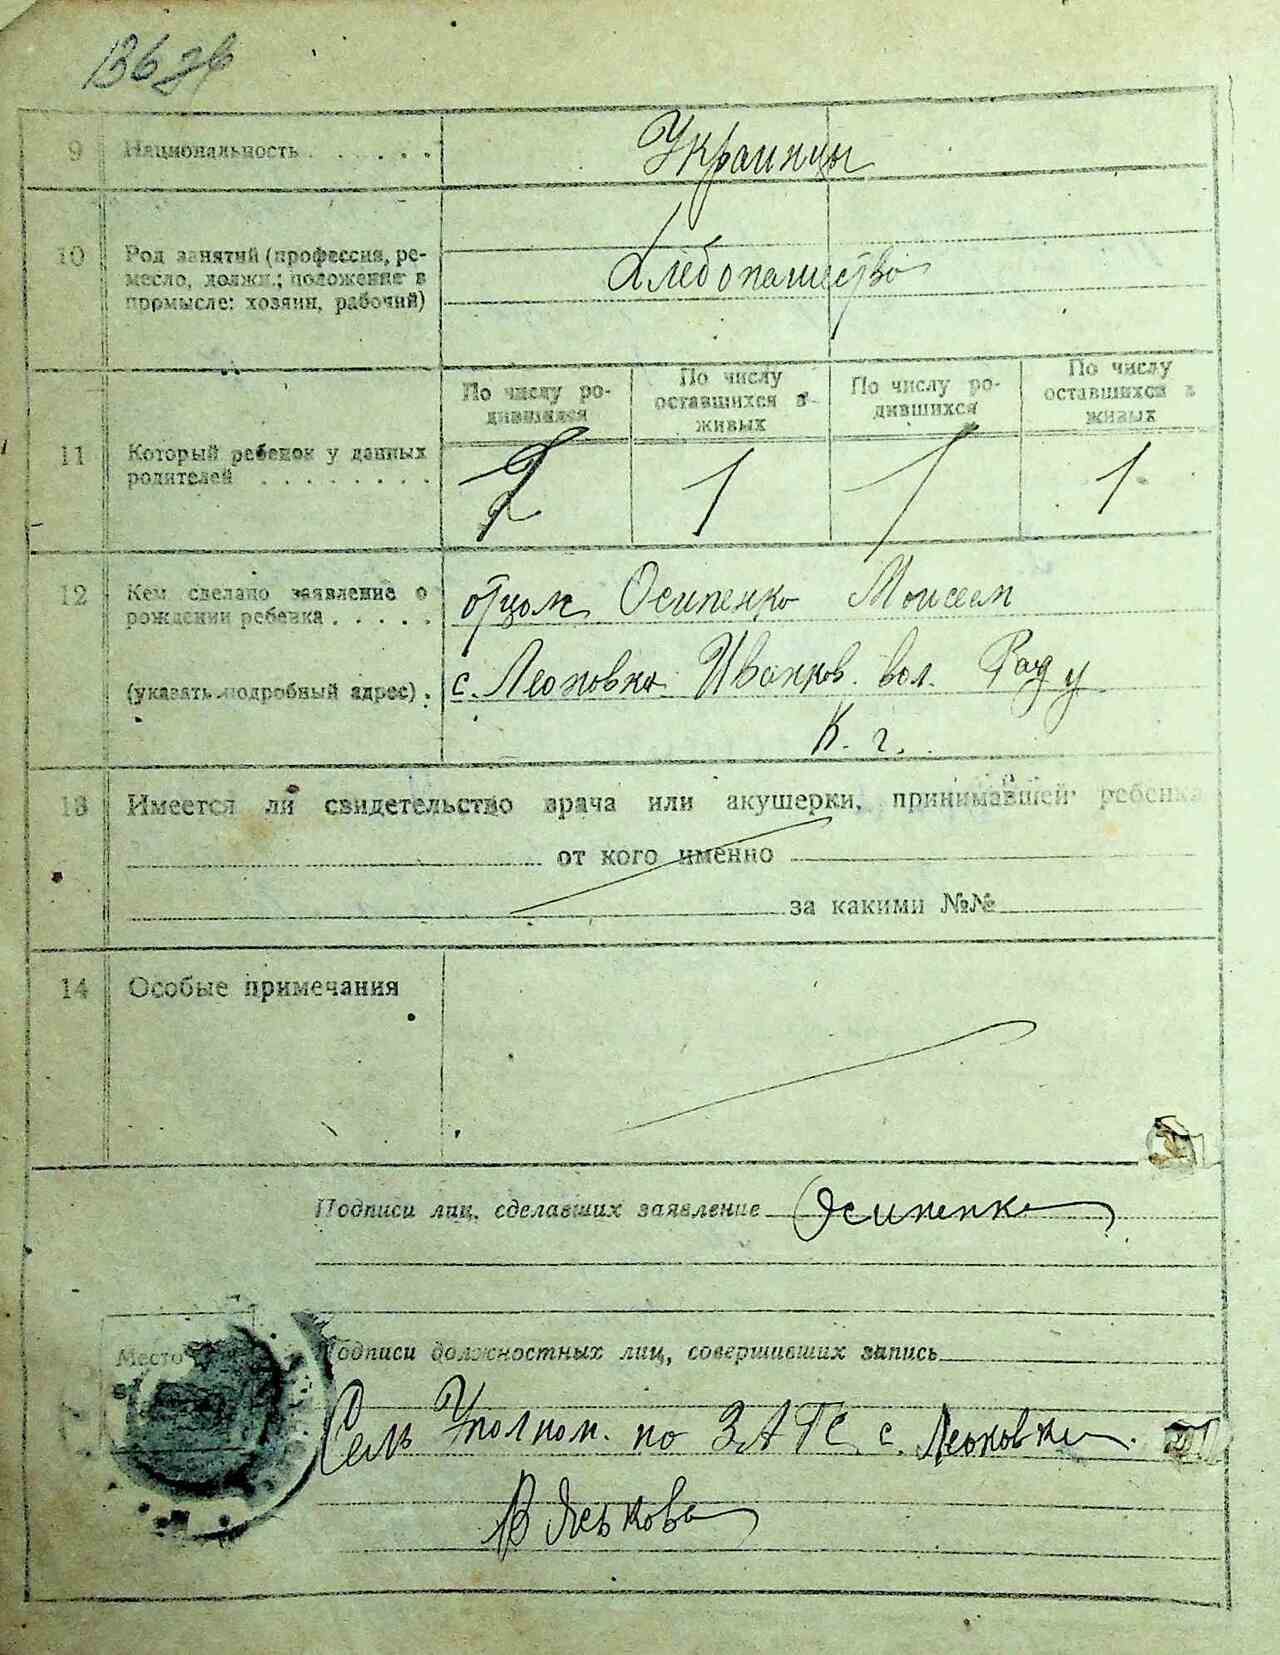 136 зв
9 Национальность Украинцы
10 Род занятий (профессия, ре-
месло, должн.; положение в
промысле: хозяин, рабочий)
Хлебопашество
По числу ро-
дившихся
По числу
оставшихся в
живых
По числу ро-
дившихся
По числу
оставшихся в
живых
11 Который ребенок у данных
родителей
2 1 1 1
12 Кем сделано заявление о
рождении ребенка
отцом Осипенко Моисеем
(указать подробный адрес) с. Леоновка Иванков. вол. Рад у
К. г.
13 Имеется ли свидетельство врача или акушерки, принимавшей ребенка
от кого именно
за какими №№
14 Особые примечания
Подписи лиц, сделавших заявление Осипенко
Место
Подписи должностных лиц, совершивших запись
Сель Уполном. по ЗАГС с. Леоновки.
В Яськова